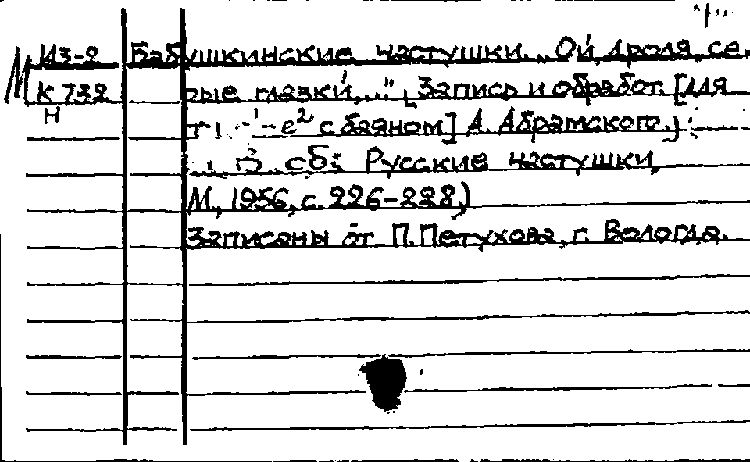 М из-2 Бабушкинские частушки. „Ой, дроля, се-
К 732 рые глазки,..." Запись и обработ. [для
Н с баяном] А. Абрамского.
В сб: Русские частушки,
М., 1956, с. 226-228)
Записаны от П. Петухова, г. Вологда.